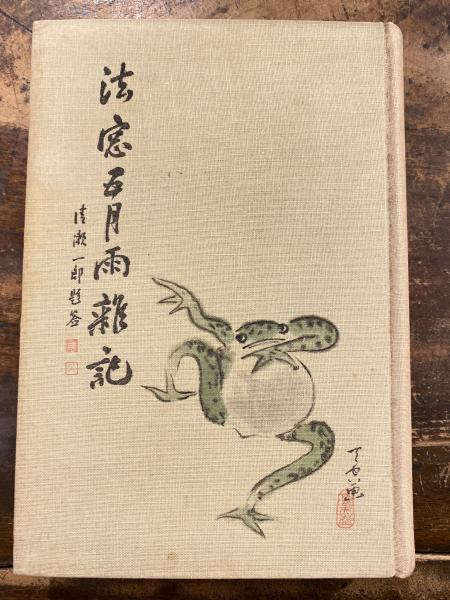 法窓五月雨雜記
清瀬一郎題簽